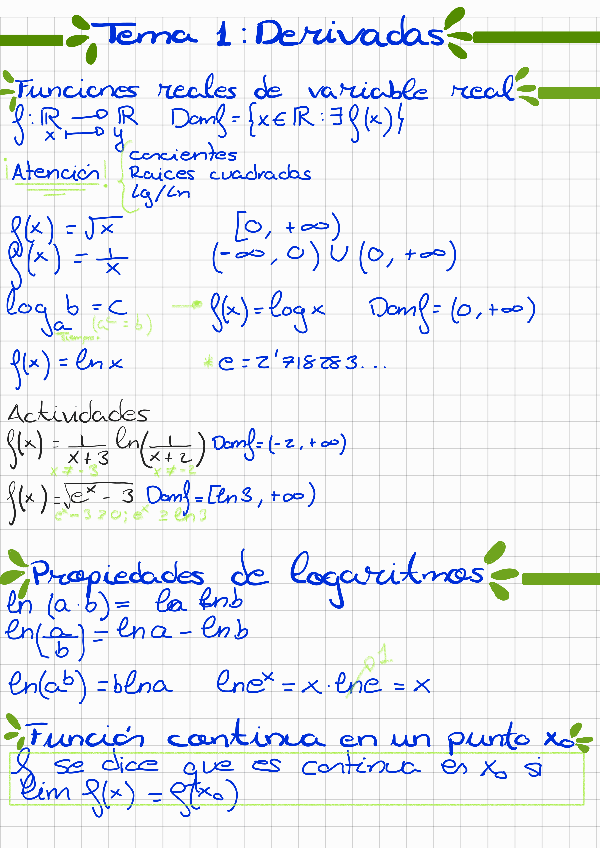 Tema 1: Derivadas
Funciones reales de variable real
f: ℝ → ℝ Domf = {x ∈ ℝ : ∃ f(x)}
x ↦ y
¡Atención! { cocientes
Raices cuadradas
Lg/Ln
f(x) = √x [0, +∞)
f(x) = 1/x (-∞, 0) ∪ (0, +∞)
logₐ b = c → f(x) = log x Domf = (0, +∞)
(aᶜ = b)
f(x) = ln x * e = 2'718283...
Actividades
f(x) = 1/(x+3) ln(1/(x+2)) Domf = (-2, +∞)
x ≠ -3 x ≠ -2
f(x) = √(eˣ - 3) Domf = [ln3, +∞)
eˣ - 3 ≥ 0; eˣ ≥ ln 3
Propiedades de logaritmos
ln (a · b) = lna lnb
ln(a/b) = ln a - ln b
ln(aᵇ) = b ln a ln eˣ = x · ln e = x
1
Función continua en un punto x₀
f se dice que es continua en x₀ si
lim f(x) = f(x₀)